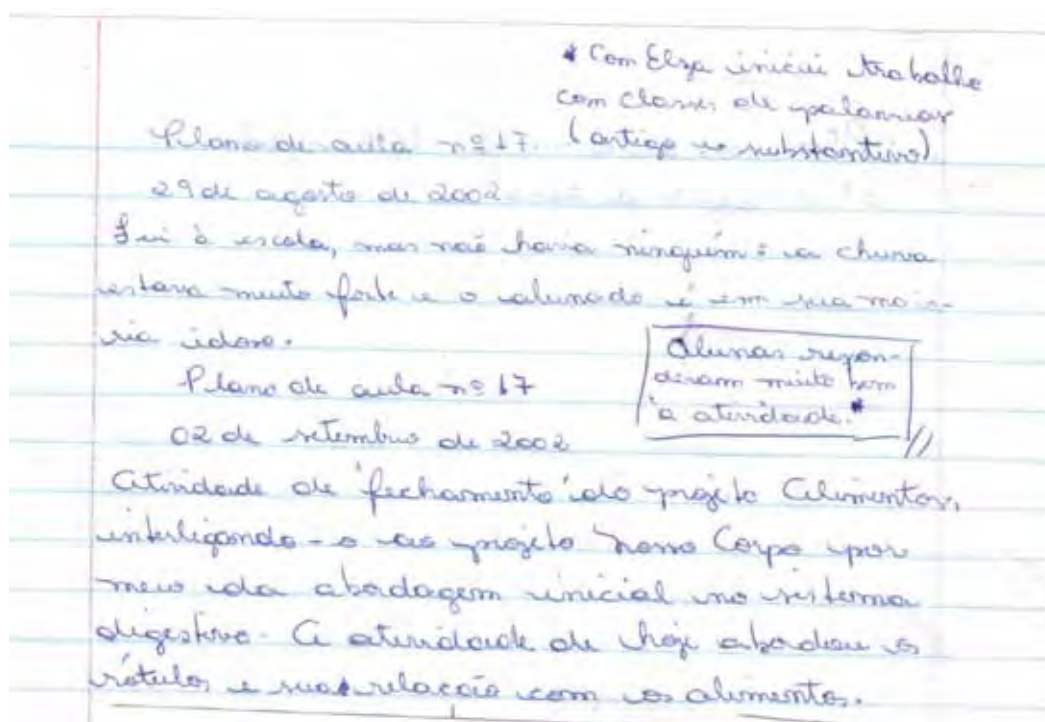 * Com Elza iniciei trabalho
com classes de palavras
(artigo e substantivo)
Plano de aula nº 17
29 de agosto de 2002
Fui à escola, mas não havia ninguém: a chuva
estava muito forte e o alunado é em sua maio-
ria idoso.
Plano de aula nº 17
02 de setembro de 2002
Alunas respon-
deram muito bem
à atividade.*
Atividade de fechamento do projeto Alimentos,
interligando-o ao projeto Nosso Corpo por
meio da abordagem inicial no sistema
digestivo. A atividade de hoje abordou os
rótulos e sua relação com os alimentos.